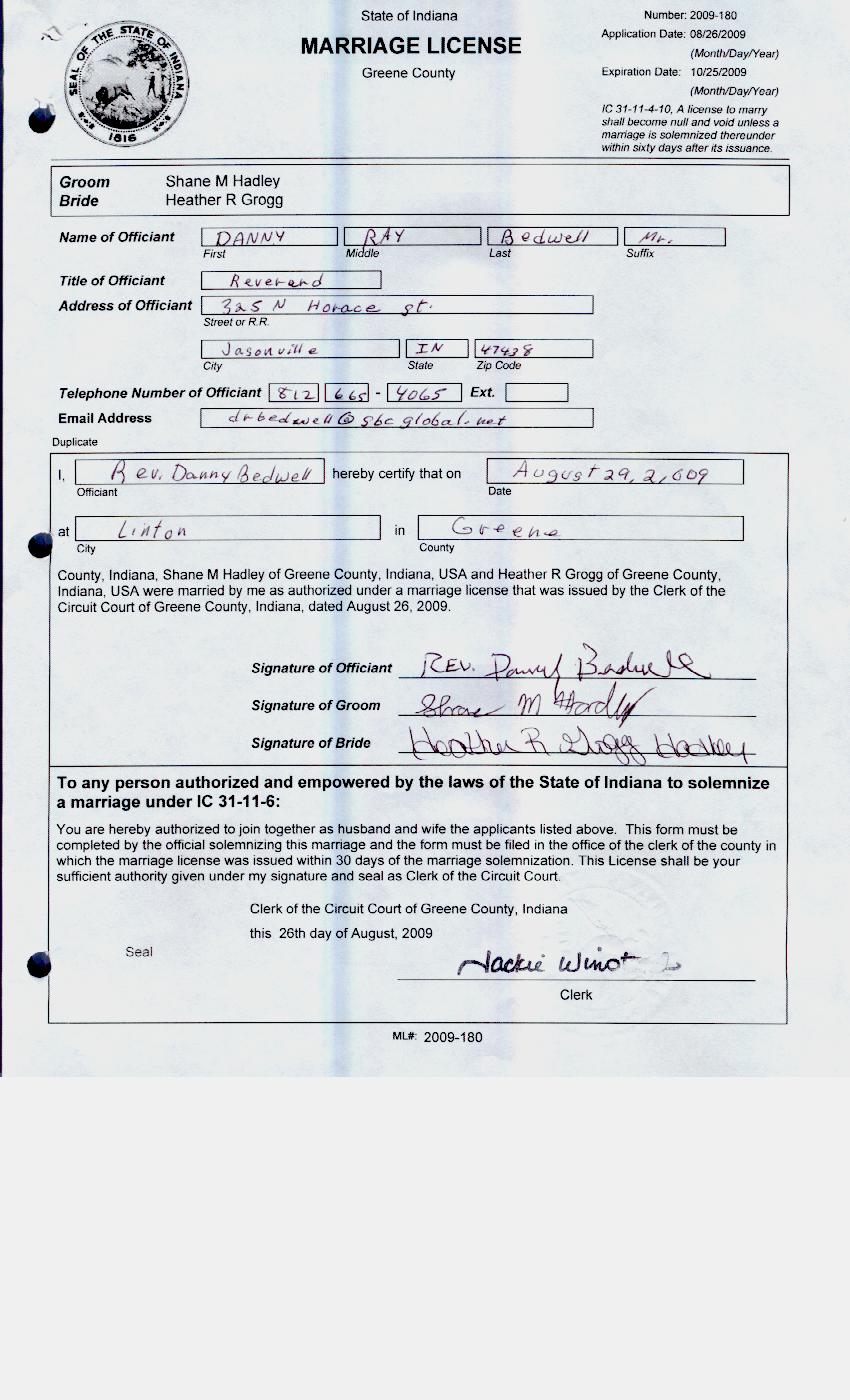 State of Indiana
MARRIAGE LICENSE
Greene County
Number: 2009-180
Application Date: 08/26/2009
(Month/Day/Year)
Expiration Date: 10/25/2009
(Month/Day/Year)
IC 31-11-4-10, A license to marry
shall become null and void unless a
marriage is solemnized thereunder
within sixty days after its issuance.
SEAL OF THE STATE OF INDIANA
1816
Groom Shane M Hadley
Bride Heather R Grogg
Name of Officiant DANNY RAY Bedwell Mr.
First Middle Last Suffix
Title of Officiant Reverand
Address of Officiant 325 N Horace st.
Street or R.R.
Jasonville IN 47438
City State Zip Code
Telephone Number of Officiant 812 665 - 4065 Ext.
Email Address drbedwell@sbcglobal.net
Duplicate
I, Rev. Danny Bedwell hereby certify that on August 29, 2,009
Officiant Date
at Linton in Greene
City County
County, Indiana, Shane M Hadley of Greene County, Indiana, USA and Heather R Grogg of Greene County,
Indiana, USA were married by me as authorized under a marriage license that was issued by the Clerk of the
Circuit Court of Greene County, Indiana, dated August 26, 2009.
Signature of Officiant REV. Danny Bedwell
Signature of Groom Shane M Hadley
Signature of Bride Heather R Grogg Hadley
To any person authorized and empowered by the laws of the State of Indiana to solemnize
a marriage under IC 31-11-6:
You are hereby authorized to join together as husband and wife the applicants listed above. This form must be
completed by the official solemnizing this marriage and the form must be filed in the office of the clerk of the county in
which the marriage license was issued within 30 days of the marriage solemnization. This License shall be your
sufficient authority given under my signature and seal as Clerk of the Circuit Court.
Clerk of the Circuit Court of Greene County, Indiana
this 26th day of August, 2009
Seal
Jackie
Clerk
ML#: 2009-180